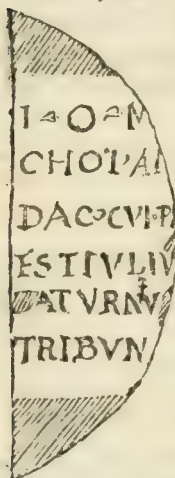 I · O · M
CHO·I·AI
DAC·CVI·P
ESTIVLIV
SATVRNV
TRIBVN